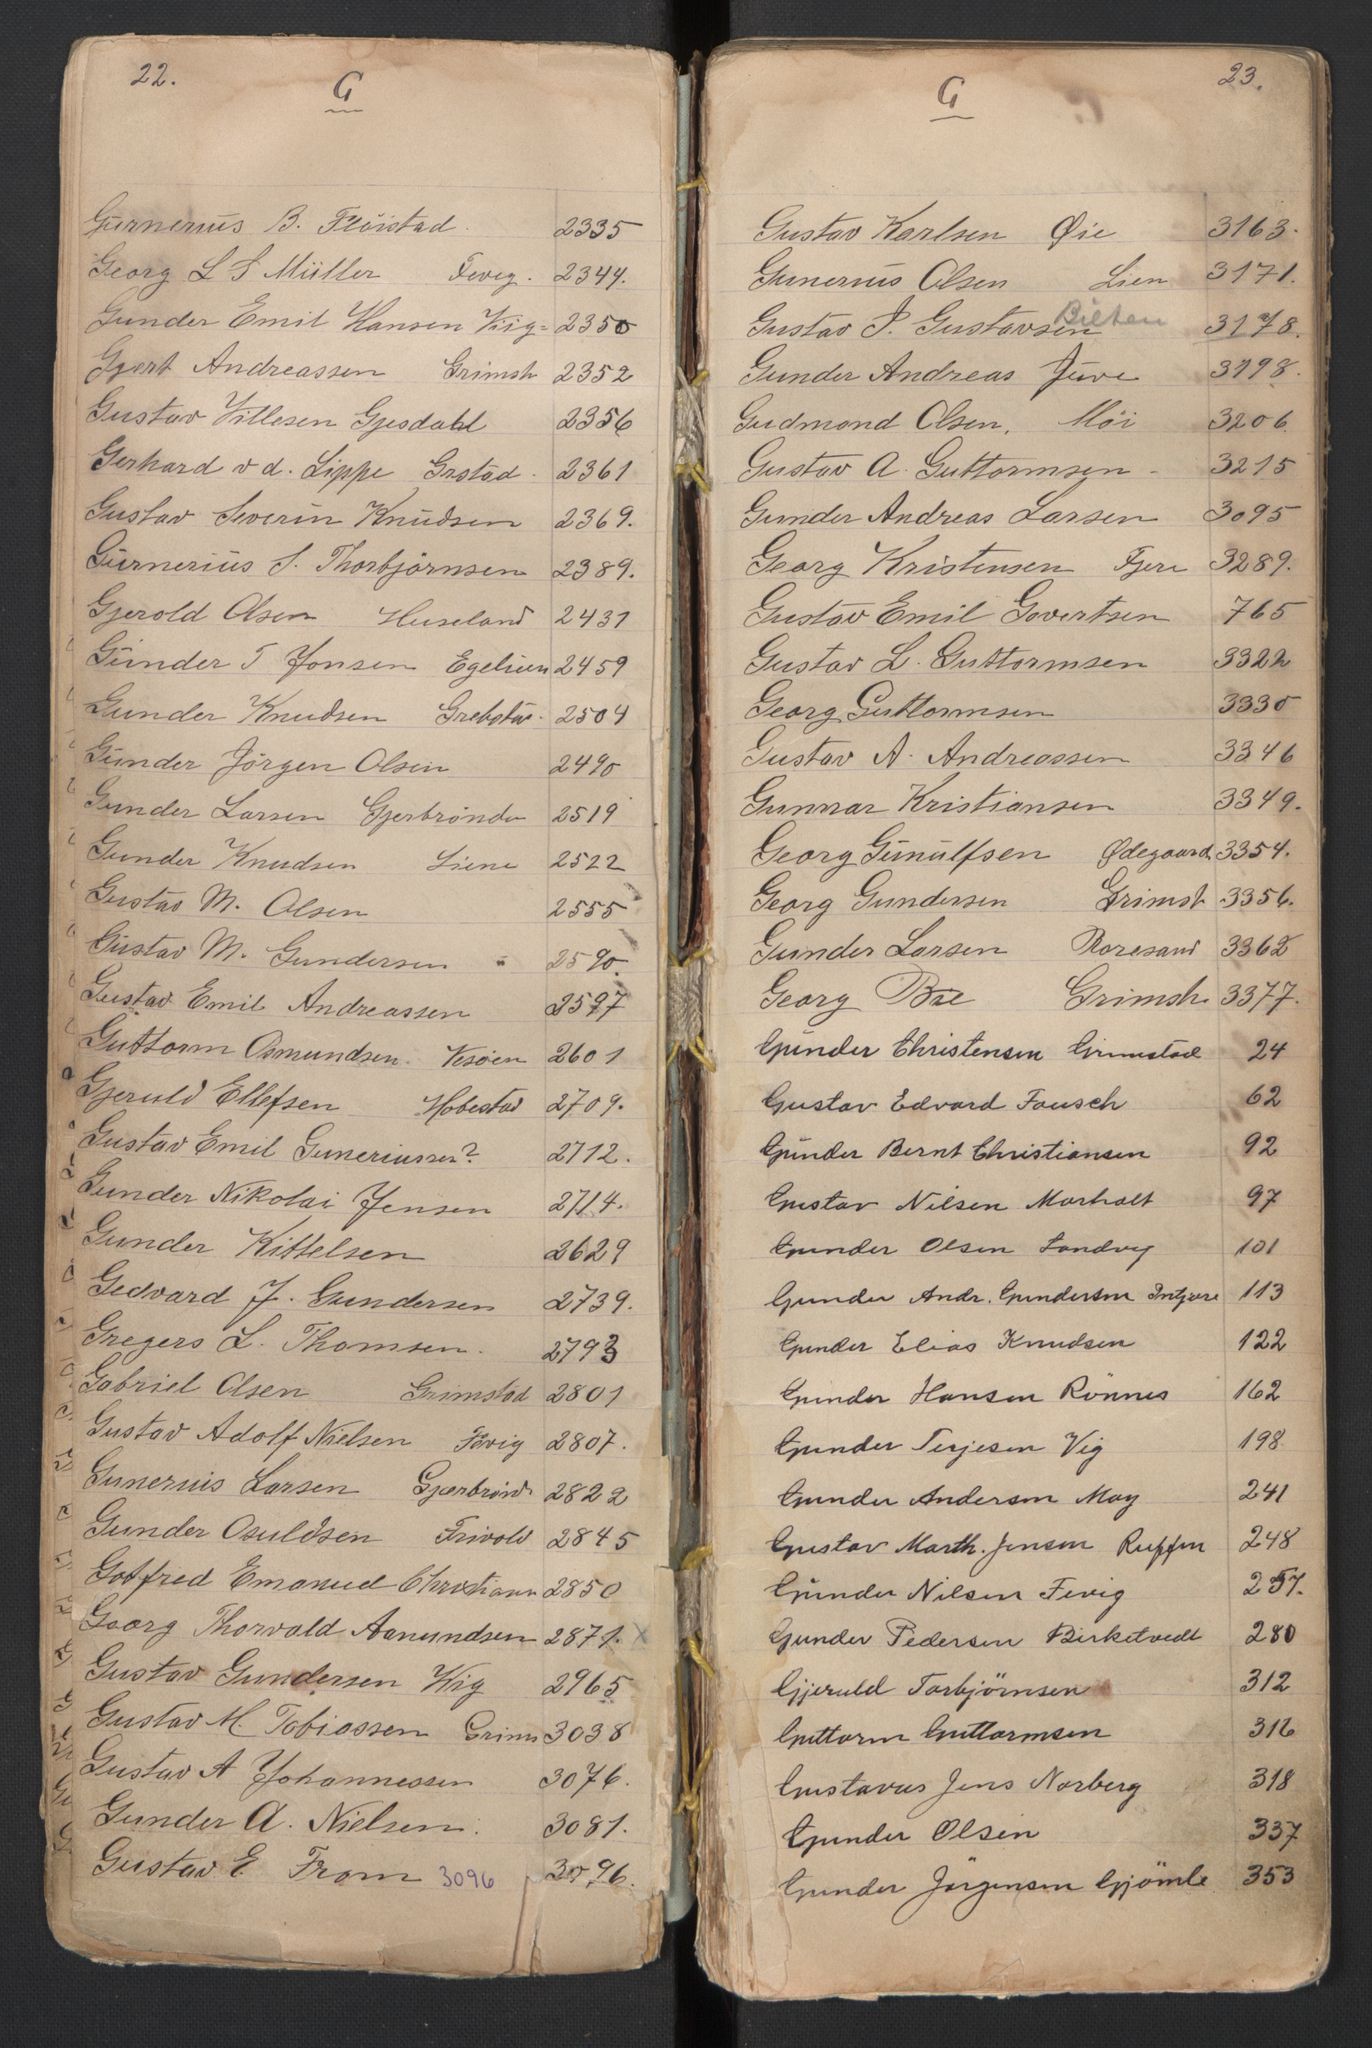 22.
G
Gurnerius B. Flöistad 2335
Georg L S Müller Feveg. 2344.
Gunder Emil Hansen Vig- 2350
Gjert Andreassen Grimst 2352
Gustav Villesen Gjesdahl 2356
Gerhard v d. Lippe Grstad. 2361
Gustav Severin Knudsen 2369.
Gurnerius S. Thorbjörnsen 2389.
Gjerold Olsen Huseland 2431
Gunder T Jonsen Egeliien 2459
Gunder Knudsen Grebstav. 2504
Gunder Jörgen Olsen 2490
Gunder Larsen Gjerbrönden 2519
Gunder Knudsen Liene 2522
Gustav M. Olsen 2555
Gustav M. Gundersen 2590.
Gustav Emil Andreassen 2597
Guttorm Osmundsen. Vesöen 2601
Gjeruld Ellefsen Hobestad 2709.
Gustav Emil Guneriussen? 2712.
Gunder Nikolai Jensen 2714.
Gunder Kittelsen 2629
Gedvard J. Gundersen 2739.
Gregers L. Thomsen. 2793
Gabriel Olsen Grimstad 2801
Gustav Adolf Nielsen Fevig 2807.
Gunerius Larsen Gjærbrönd 2822
Gunder Osuldsen Frivold 2845
Gotfred Emanuel Christians 2850
Georg Thorvald Aanundsen 2871. x
Gustav Gundersen Vig 2965
Gustav M. Tobiassen Grims 3038
Gustav A Johannessen 3076.
Gunder A. Nielsen. 3081.
Gustav E. From 3096 3096.
23.
G
Gustav Karlsen Øie 3163.
Gunerius Olsen Lien 3171.
Gustav P. Gustavsen Bieten 3178.
Gunder Andreas Juve 3198.
Gudmond Olsen. Möi 3206
Gustav A. Guttormsen - 3215
Gunder Andreas Larsen 3095
Georg Kristensen Fjere 3289.
Gustav Emil Govertsen 765
Gustav L. Guttormsen 3322
Georg Guttormsen 3330
Gustav A. Andreassen 3346
Gunnar Kristiansen 3349.
Georg Gunulfsen Ødegaard 3354.
Georg Gundersen Grimst 3356.
Gunder Larsen Roresand 3362
Georg Bie Grimst. 3377.
Gunder Christensen Grimstad 24
Gustav Edvard Fausch 62
Gunder Bernt Christiansen 92
Gustav Nilsen Morholt 97
Gunder Olsen Landvig 101
Gunder Andr. Gundersen Intjøre 113
Gunder Elias Knudsen 122
Gunder Hansen Rönnes 162
Gunder Terjesen Vig 198
Gunder Andersen Moy 241
Gustav Marth. Jensen Ruffen 248
Gunder Nilsen Fevig 257.
Gunder Pedersen Birketvedt 280
Gjeruld Torbjörnsen 312
Guttorm Guttormsen 316
Gustavus Jens Norberg 318
Gunder Olsen 337
Gunder Jörgensen Gjömle 353